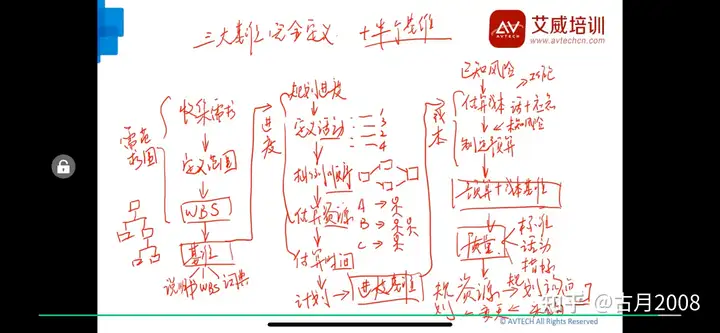 三大基准完全定义 十半个基准
艾威培训
AVTECH
www.avtechcn.com
收集需求
定义范围
WBS
基准
说明书 WBS 词典
进度
规划进度
定义活动
1
3
2
4
排序
估算资源
A
B
C
估算时间
计划
进度基准
成本
已知风险
估算成本
制定预算
预算+成本基准
质量
标准
活动
指标
规划
资源
变更
知乎 @古月2008
© AVTECH All Rights Reserved